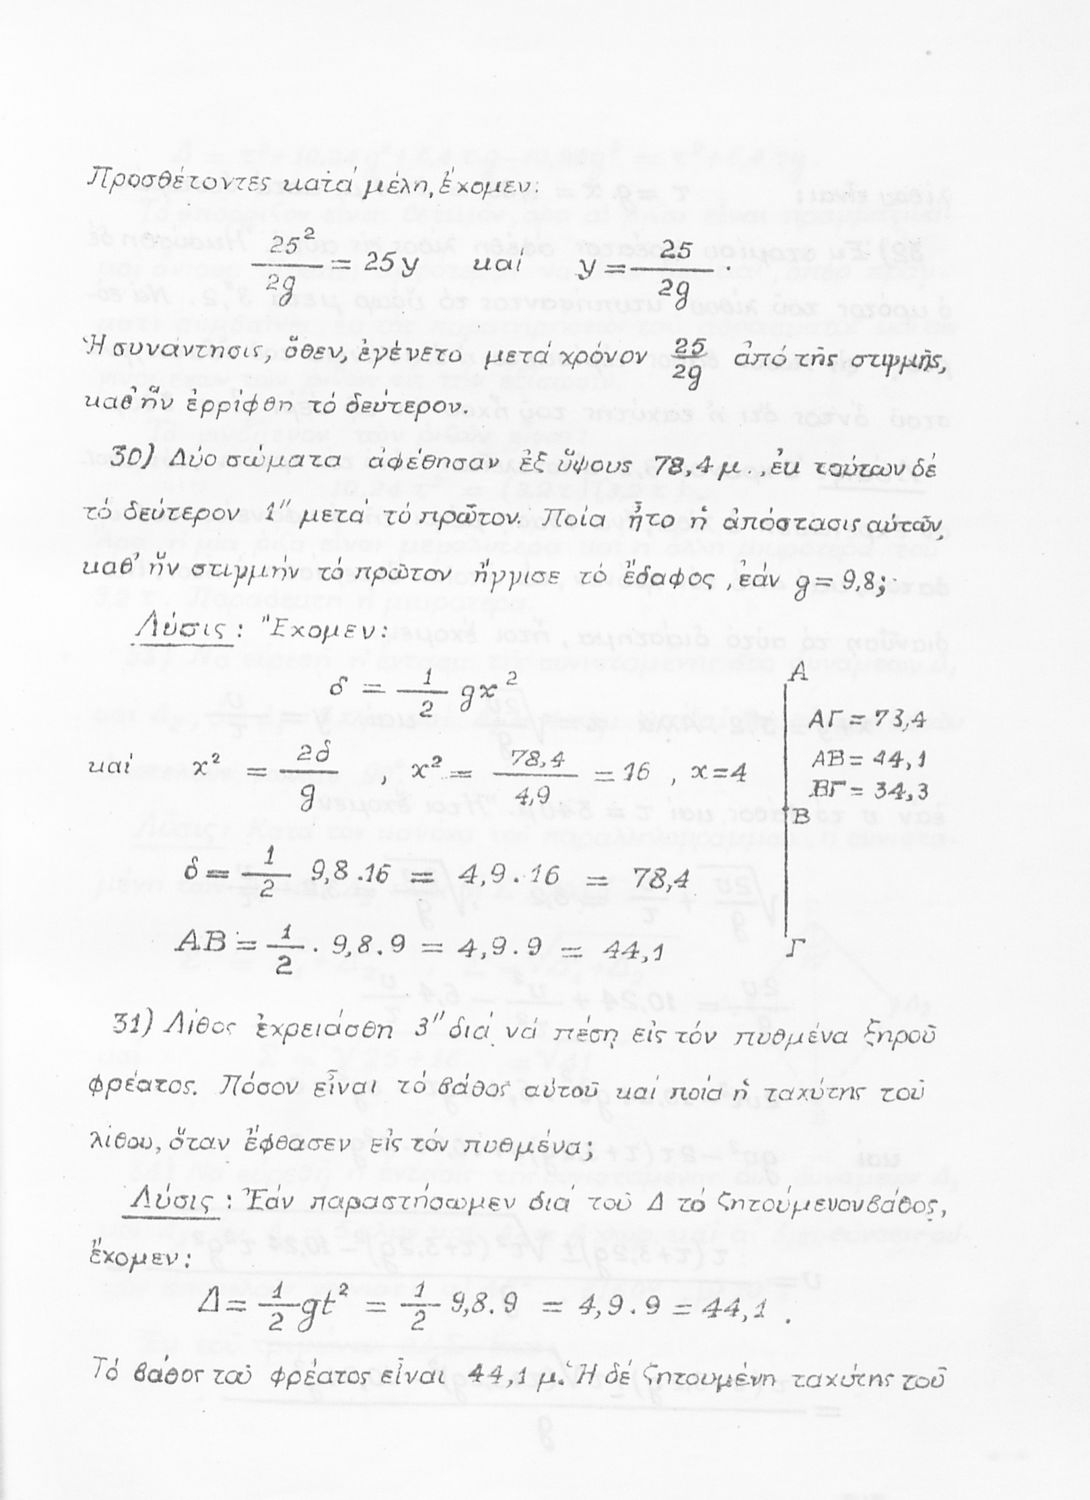 Προσθέτοντες κατά μέλη, ἔχομεν:
25²/2g = 25y καί y = 25/2g .
Ἡ συνάντησις, ὅθεν, ἐγένετο μετά χρόνον 25/2g ἀπό τῆς στιγμῆς,
καθ' ἥν ἐρρίφθη τό δεύτερον.
30) Δύο σώματα ἀφέθησαν ἐξ ὕψους 78,4 μ., ἐκ τούτων δέ
τό δεύτερον 1'' μετά τό πρῶτον. Ποία ἦτο ἡ ἀπόστασις αὐτῶν,
καθ' ἥν στιγμήν τό πρῶτον ἤγγισε τό ἔδαφος, ἐάν g = 9,8;
Λύσις: Ἔχομεν:
δ = 1/2 gx²
καί x² = 2δ/g , x² = 78,4/4,9 = 16 , x=4
δ = 1/2 9,8 . 16 = 4,9 . 16 = 78,4
ΑΒ = 1/2 . 9,8 . 9 = 4,9 . 9 = 44,1
Α
ΑΓ = 73,4
ΑΒ = 44,1
ΒΓ = 34,3
Β
Γ
31) Λίθος ἐχρειάσθη 3'' διά νά πέσῃ εἰς τόν πυθμένα ξηροῦ
φρέατος. Πόσον εἶναι τό βάθος αὐτοῦ καί ποία ἡ ταχύτης τοῦ
λίθου, ὅταν ἔφθασεν εἰς τόν πυθμένα;
Λύσις: Ἐάν παραστήσωμεν διά τοῦ Δ τό ζητούμενον βάθος,
ἔχομεν:
Δ = 1/2 gt² = 1/2 9,8 . 9 = 4,9 . 9 = 44,1 .
Τό βάθος τοῦ φρέατος εἶναι 44,1 μ. Ἡ δέ ζητουμένη ταχύτης τοῦ